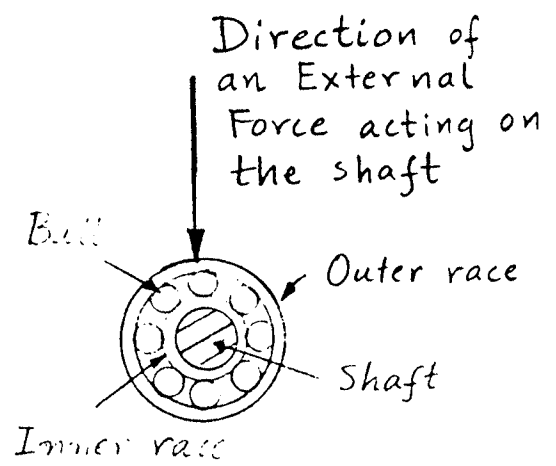 Direction of
an External
Force acting on
the shaft
Ball
Outer race
Shaft
Inner race